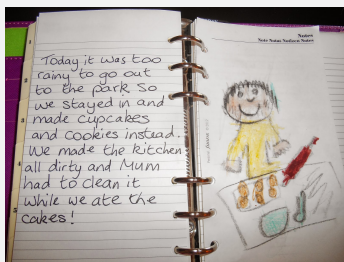 Today it was too
rainy to go out
to the park so
we stayed in and
made cupcakes
and cookies instead.
We made the kitchen
all dirty and Mum
had to clean it
while we ate the
cakes!
Notes
Note Notas Notizen Notes